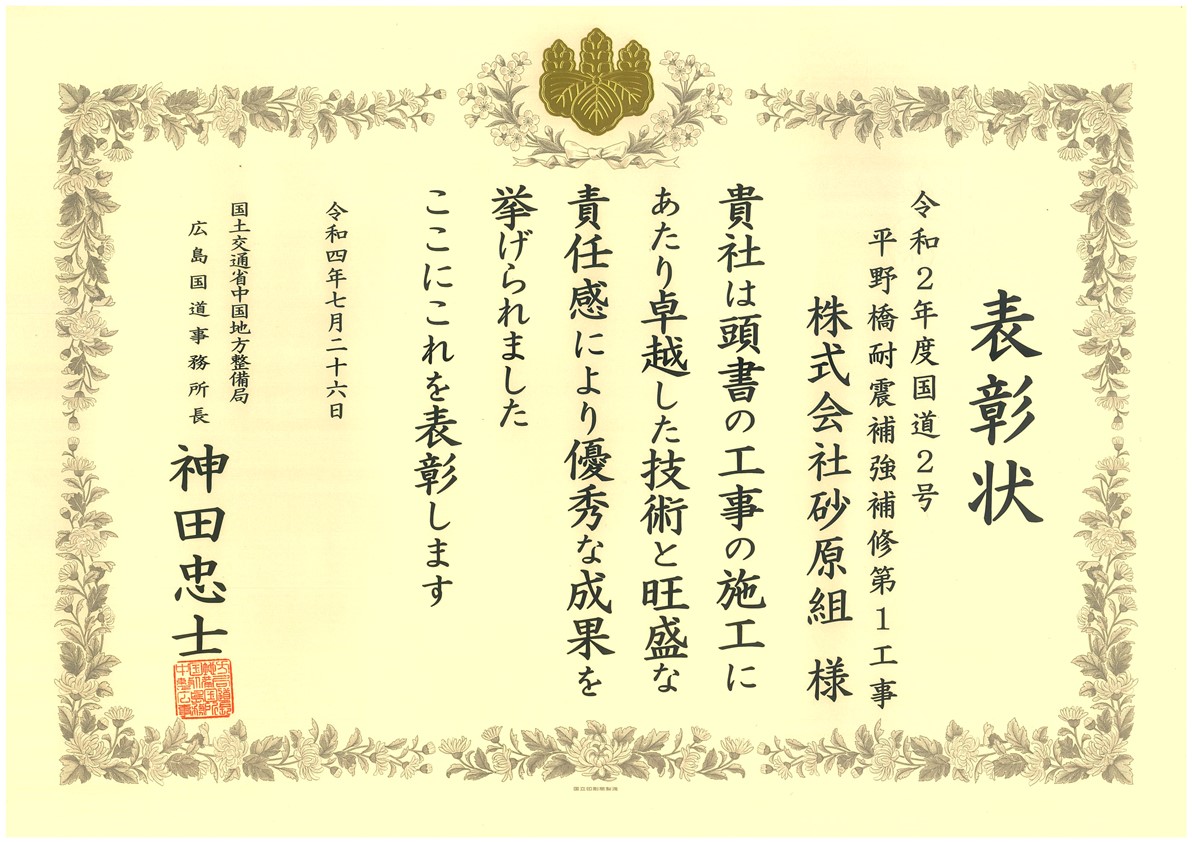 表彰状
令和２年度国道２号
平野橋耐震補強補修第１工事
株式会社砂原組　様
貴社は頭書の工事の施工に
あたり卓越した技術と旺盛な
責任感により優秀な成果を
挙げられました
ここにこれを表彰します
令和四年七月二十六日
国土交通省中国地方整備局
広島国道事務所長
神田忠士
国立印刷局製造